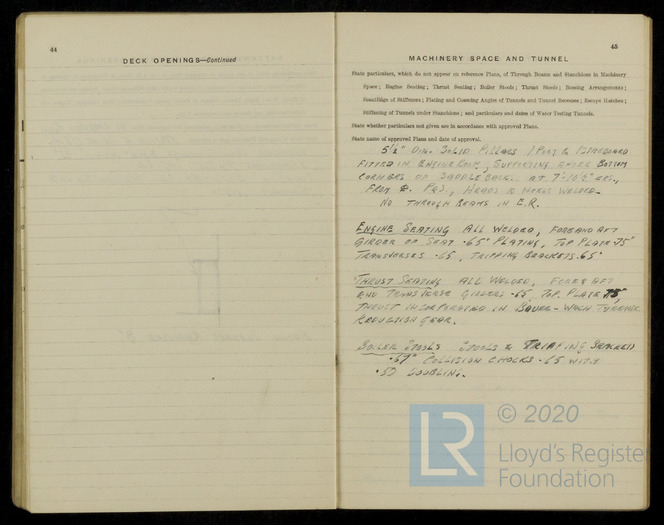 44
DECK OPENINGS—Continued
45
MACHINERY SPACE AND TUNNEL
State particulars, which do not appear on reference Plans, of Through Beams and Stanchions in Machinery
Space; Engine Seating; Thrust Seating; Boiler Stools; Thrust Stools; Bossing Arrangements;
Scantlings of Stiffeners; Plating and Coaming Angles of Tunnels and Tunnel Recesses; Escape Hatches;
Stiffening of Tunnels under Stanchions; and particulars and dates of Water Testing Tunnels.
State whether particulars not given are in accordance with approved Plans.
State name of approved Plans and date of approval.
5½" DIA. SOLID PILLARS 1 PORT & 1 STARBOARD
FITTED IN ENGINE ROOM, SUPPORTING BOTTOM
CORNERS OF SADDLE BACK AT
FROM P&S., HEADS & HEELS WELDED.
NO THROUGH BEAMS IN E.R.
ENGINE SEATING ALL WELDED, FORE AND AFT
GIRDER OF SEAT .65" PLATING, TOP PLATE .75"
TRANSVERSES .65, TRIPPING BRACKETS .65"
THRUST SEATING ALL WELDED, FORE & AFT
AND TRANSVERSE GIRDERS .65, TOP PLATE .75"
THRUST INCORPORATED IN BAUER-WACH TURBINE
REDUCTION GEAR.
BOILER STOOLS STOOLS & TRIPPING BRACKETS
.57" COLLISION CHOCKS .65 WITH
.50 DOUBLING.
LR
© 2020
Lloyd's Register
Foundation